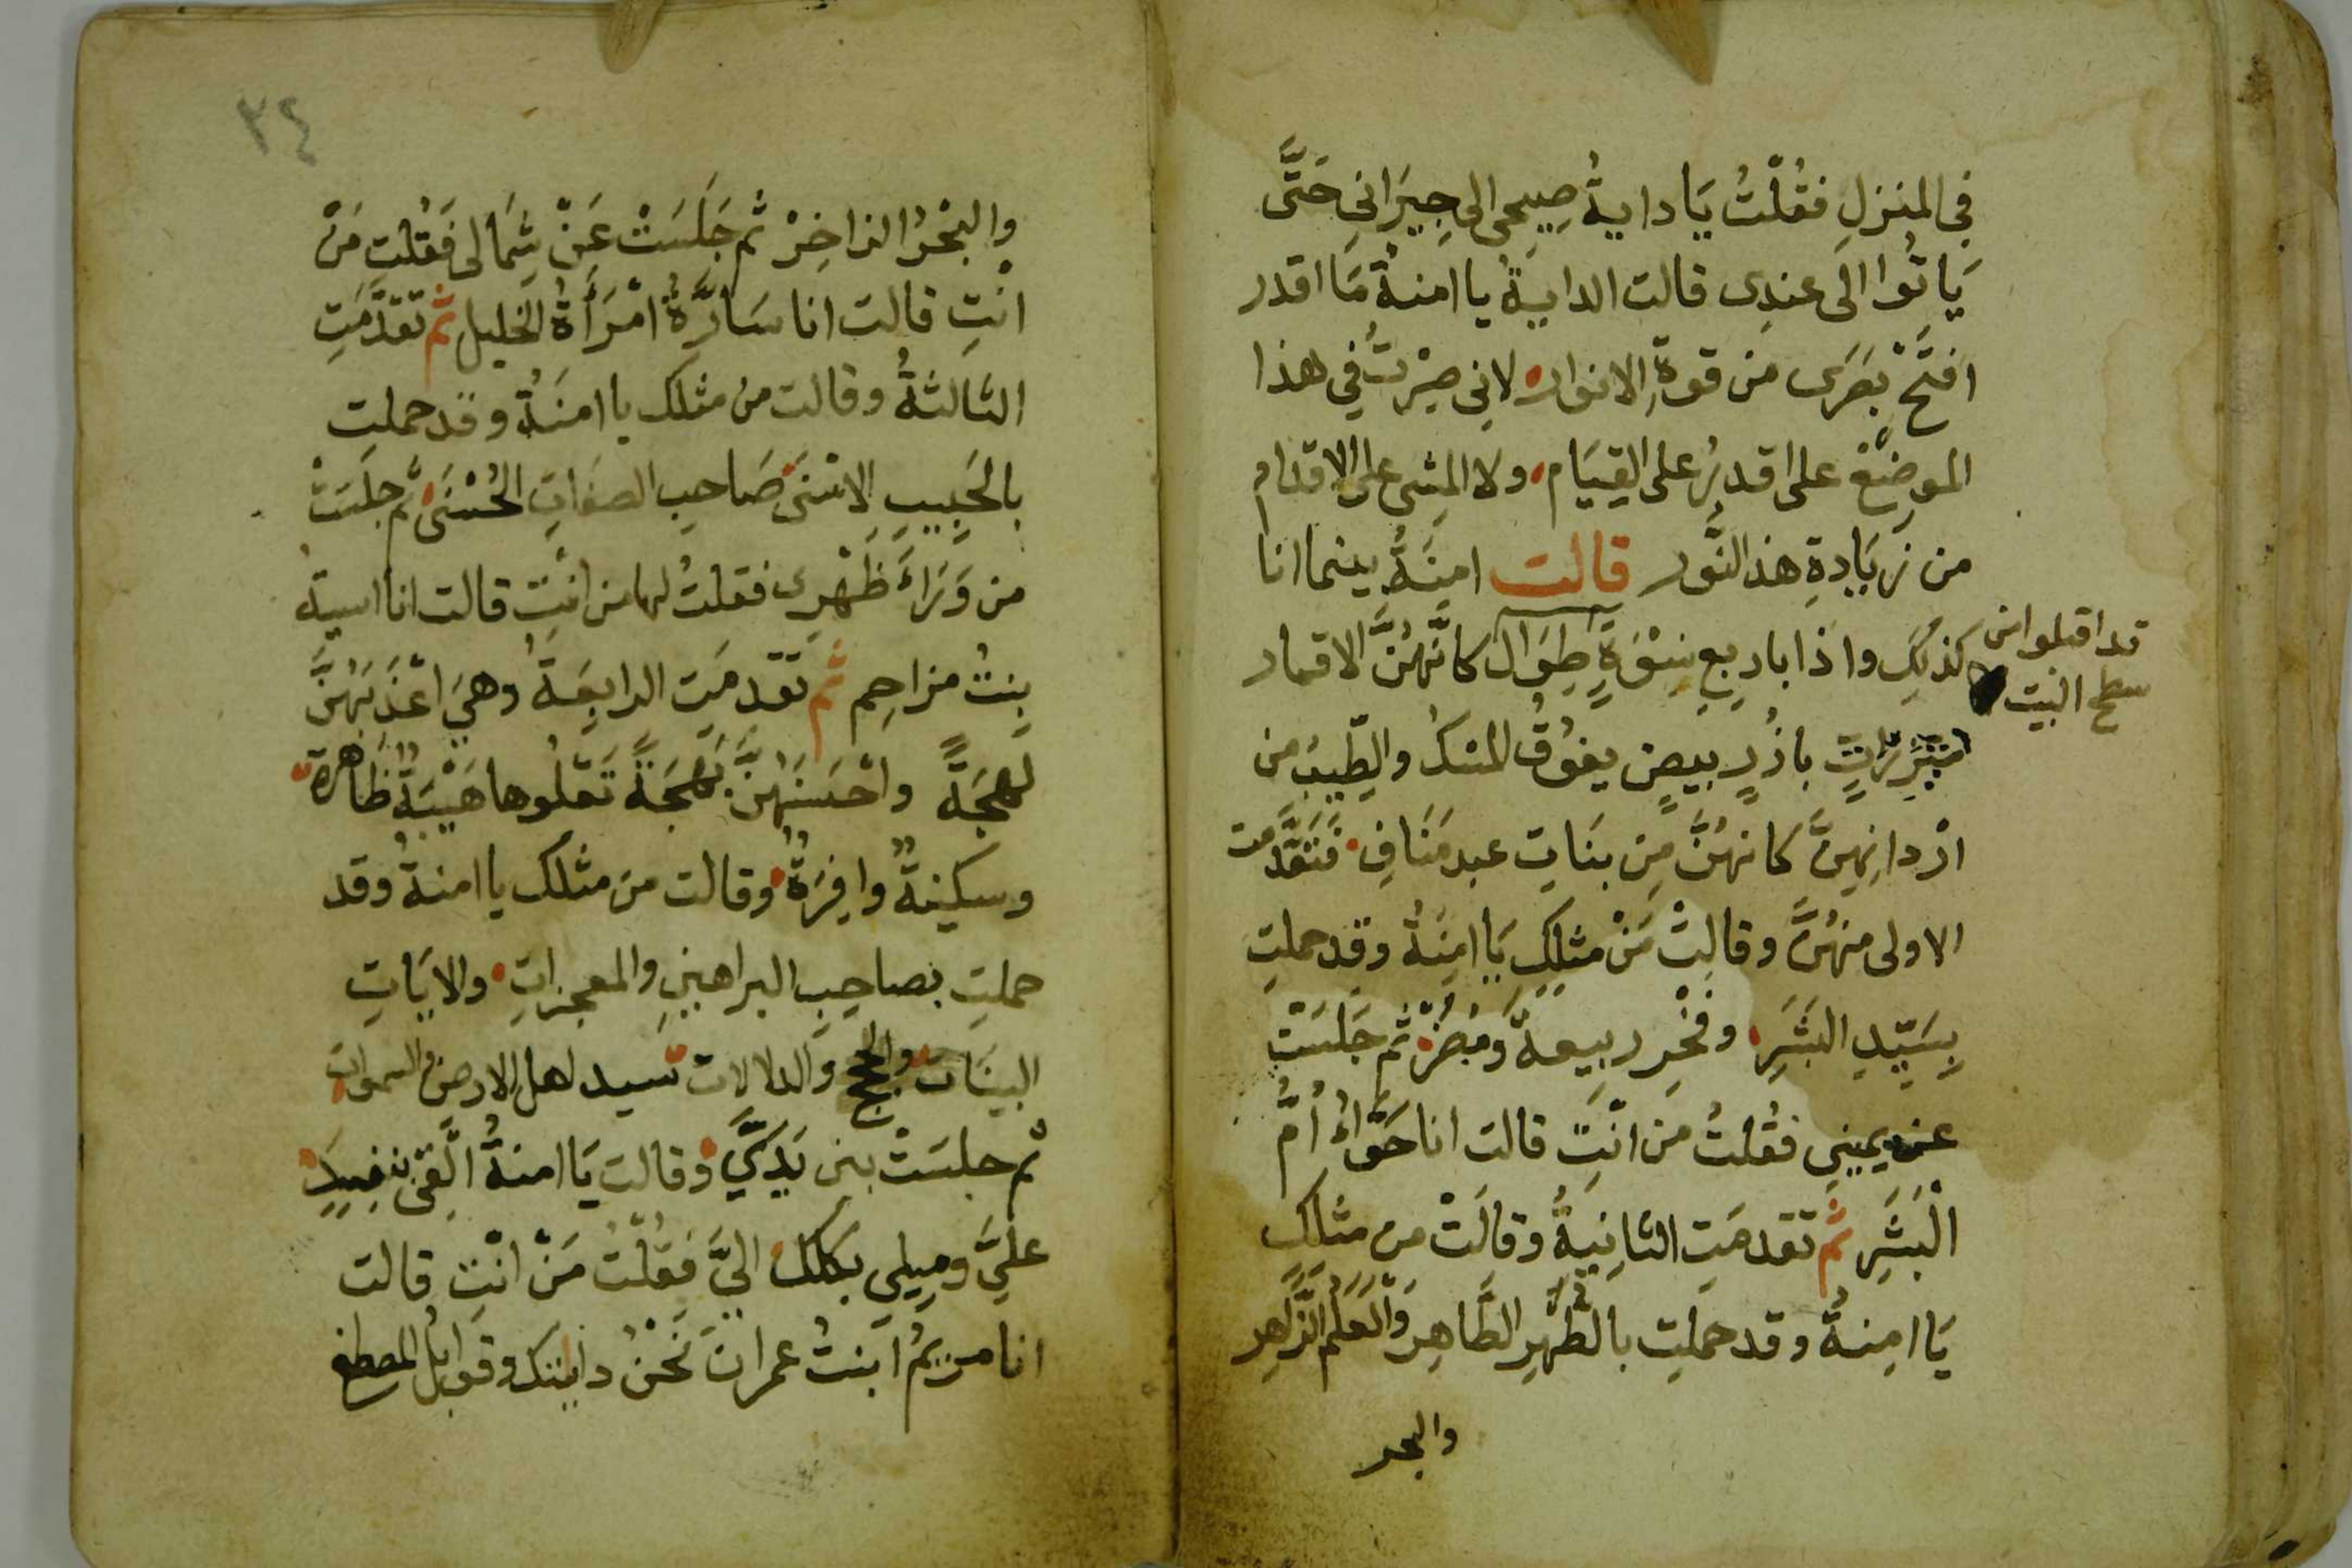 في المنزلِ فقُلْتُ يَا دايةُ صِيحى الى جِيرَانى حَتَّى
يَاتُوا الَى عندِى قالت الدايةُ يا امنةُ مَا اقدر
افتَحْ بَصَرى من قوةِ الانوار لانى صِرْتُ فى هذا
الموضع على اقدرُ على القِيَام ولا المشى على الاقدام
من زيَادةِ هذ النُّور قالت امِنَةُ بينما انا
كذلِكَ واذا باربعِ نِسْوَةٍ طِوَال كانَّهُنَّ الاقمار
قد اقبلوا من
سطح البيت
مُتَزِرَاتٍ بازُرٍ بيضٍ يفوُقُ المسْكُ والطِّيبُ من
ارْدانِهِنَّ كانهُنَّ مِن بنَاتِ عبد مَنَافٍ فَتَقَدَّمت
الاولى منهُنَّ وقالتْ مَنْ مثلكِ يَا امِنَةُ وقد حملتِ
بِسَيِّدِ البَشَرِ وفَخْرِ ربيعةَ وَمُضَرْ ثم جَلسَتْ
عن يمينى فقُلتُ مَن انْتِ قالت انا حَوَّاءُ اُمُّ
الْبَشَرِ ثم تقدمَتِ الثانِيةُ وقالَتْ مِن مِثلِكِ
يَا امِنةُ وقد حملتِ بالطُّهرِ الطَّاهِرِ وَالْعَلَمِ الزَّاهِر
والبحر
٣٤
والبَحْرُ الزاخِرْ ثم جَلَسَتْ عَنْ شِمَالى فَقُلتِ مَنْ
انْتِ قالت انا سَارَّةُ امْرَأَةُ الخليل ثم تقدَّمَتِ
الثالثةُ وقالت من مثلك يا امنَةُ وقد حملتِ
بالحَبِيبِ الاسْنَى صَاحِبِ الصفَاتِ الحُسْنَى ثم جلَسَتْ
من وَرَاءَ ظَهْرِى فقلتُ لها من انتِ قالت انا اسيةُ
بِنتُ مزاحِم ثم تقدمَتِ الرابِعَةُ وهىَ اعْذَبَهُنَّ
لهجَةً واحْسَنَهُنَّ بهْجَةً تَعْلُوها هَيْبَةٌ ظَاهرة
وسكينةٌ وافِرَةٌ وقالت من مثلك يا امنةُ وقد
حملتِ بصاحِبِ البراهينِ والمعجزاتِ والايَاتِ
البينات والحجج والدلالات سيد اهل الارض والسموات
ثم جلسَتْ بين يَدَيَّ وقالت يَا امنةُ الْقى نفسِك
علىَّ ومِيلى بكلك الىَّ فقُلْتُ مَنْ انْتِ قالت
انا مريمُ ابنتُ عمران نَحْنُ دايتك وقوابلُ المصطفى